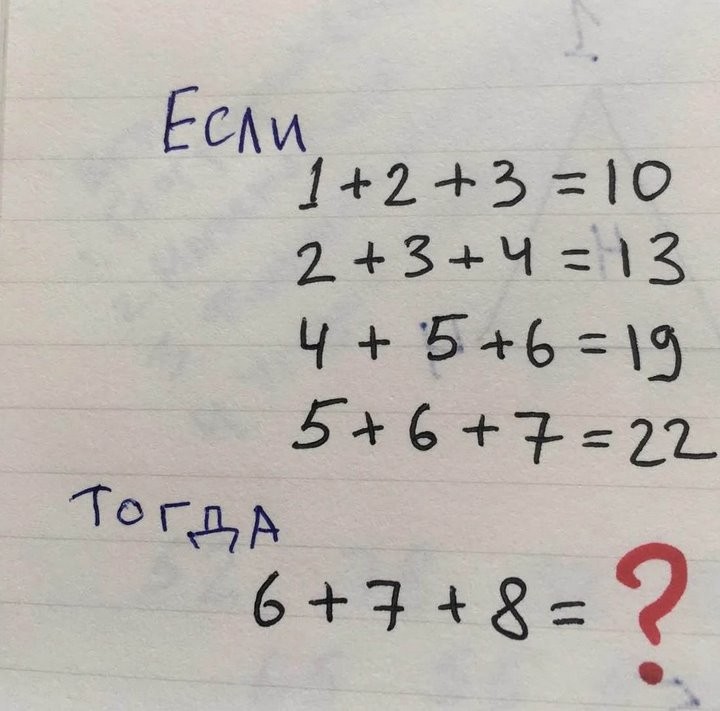 Если
1 + 2 + 3 = 10
2 + 3 + 4 = 13
4 + 5 + 6 = 19
5 + 6 + 7 = 22
Тогда
6 + 7 + 8 = ?